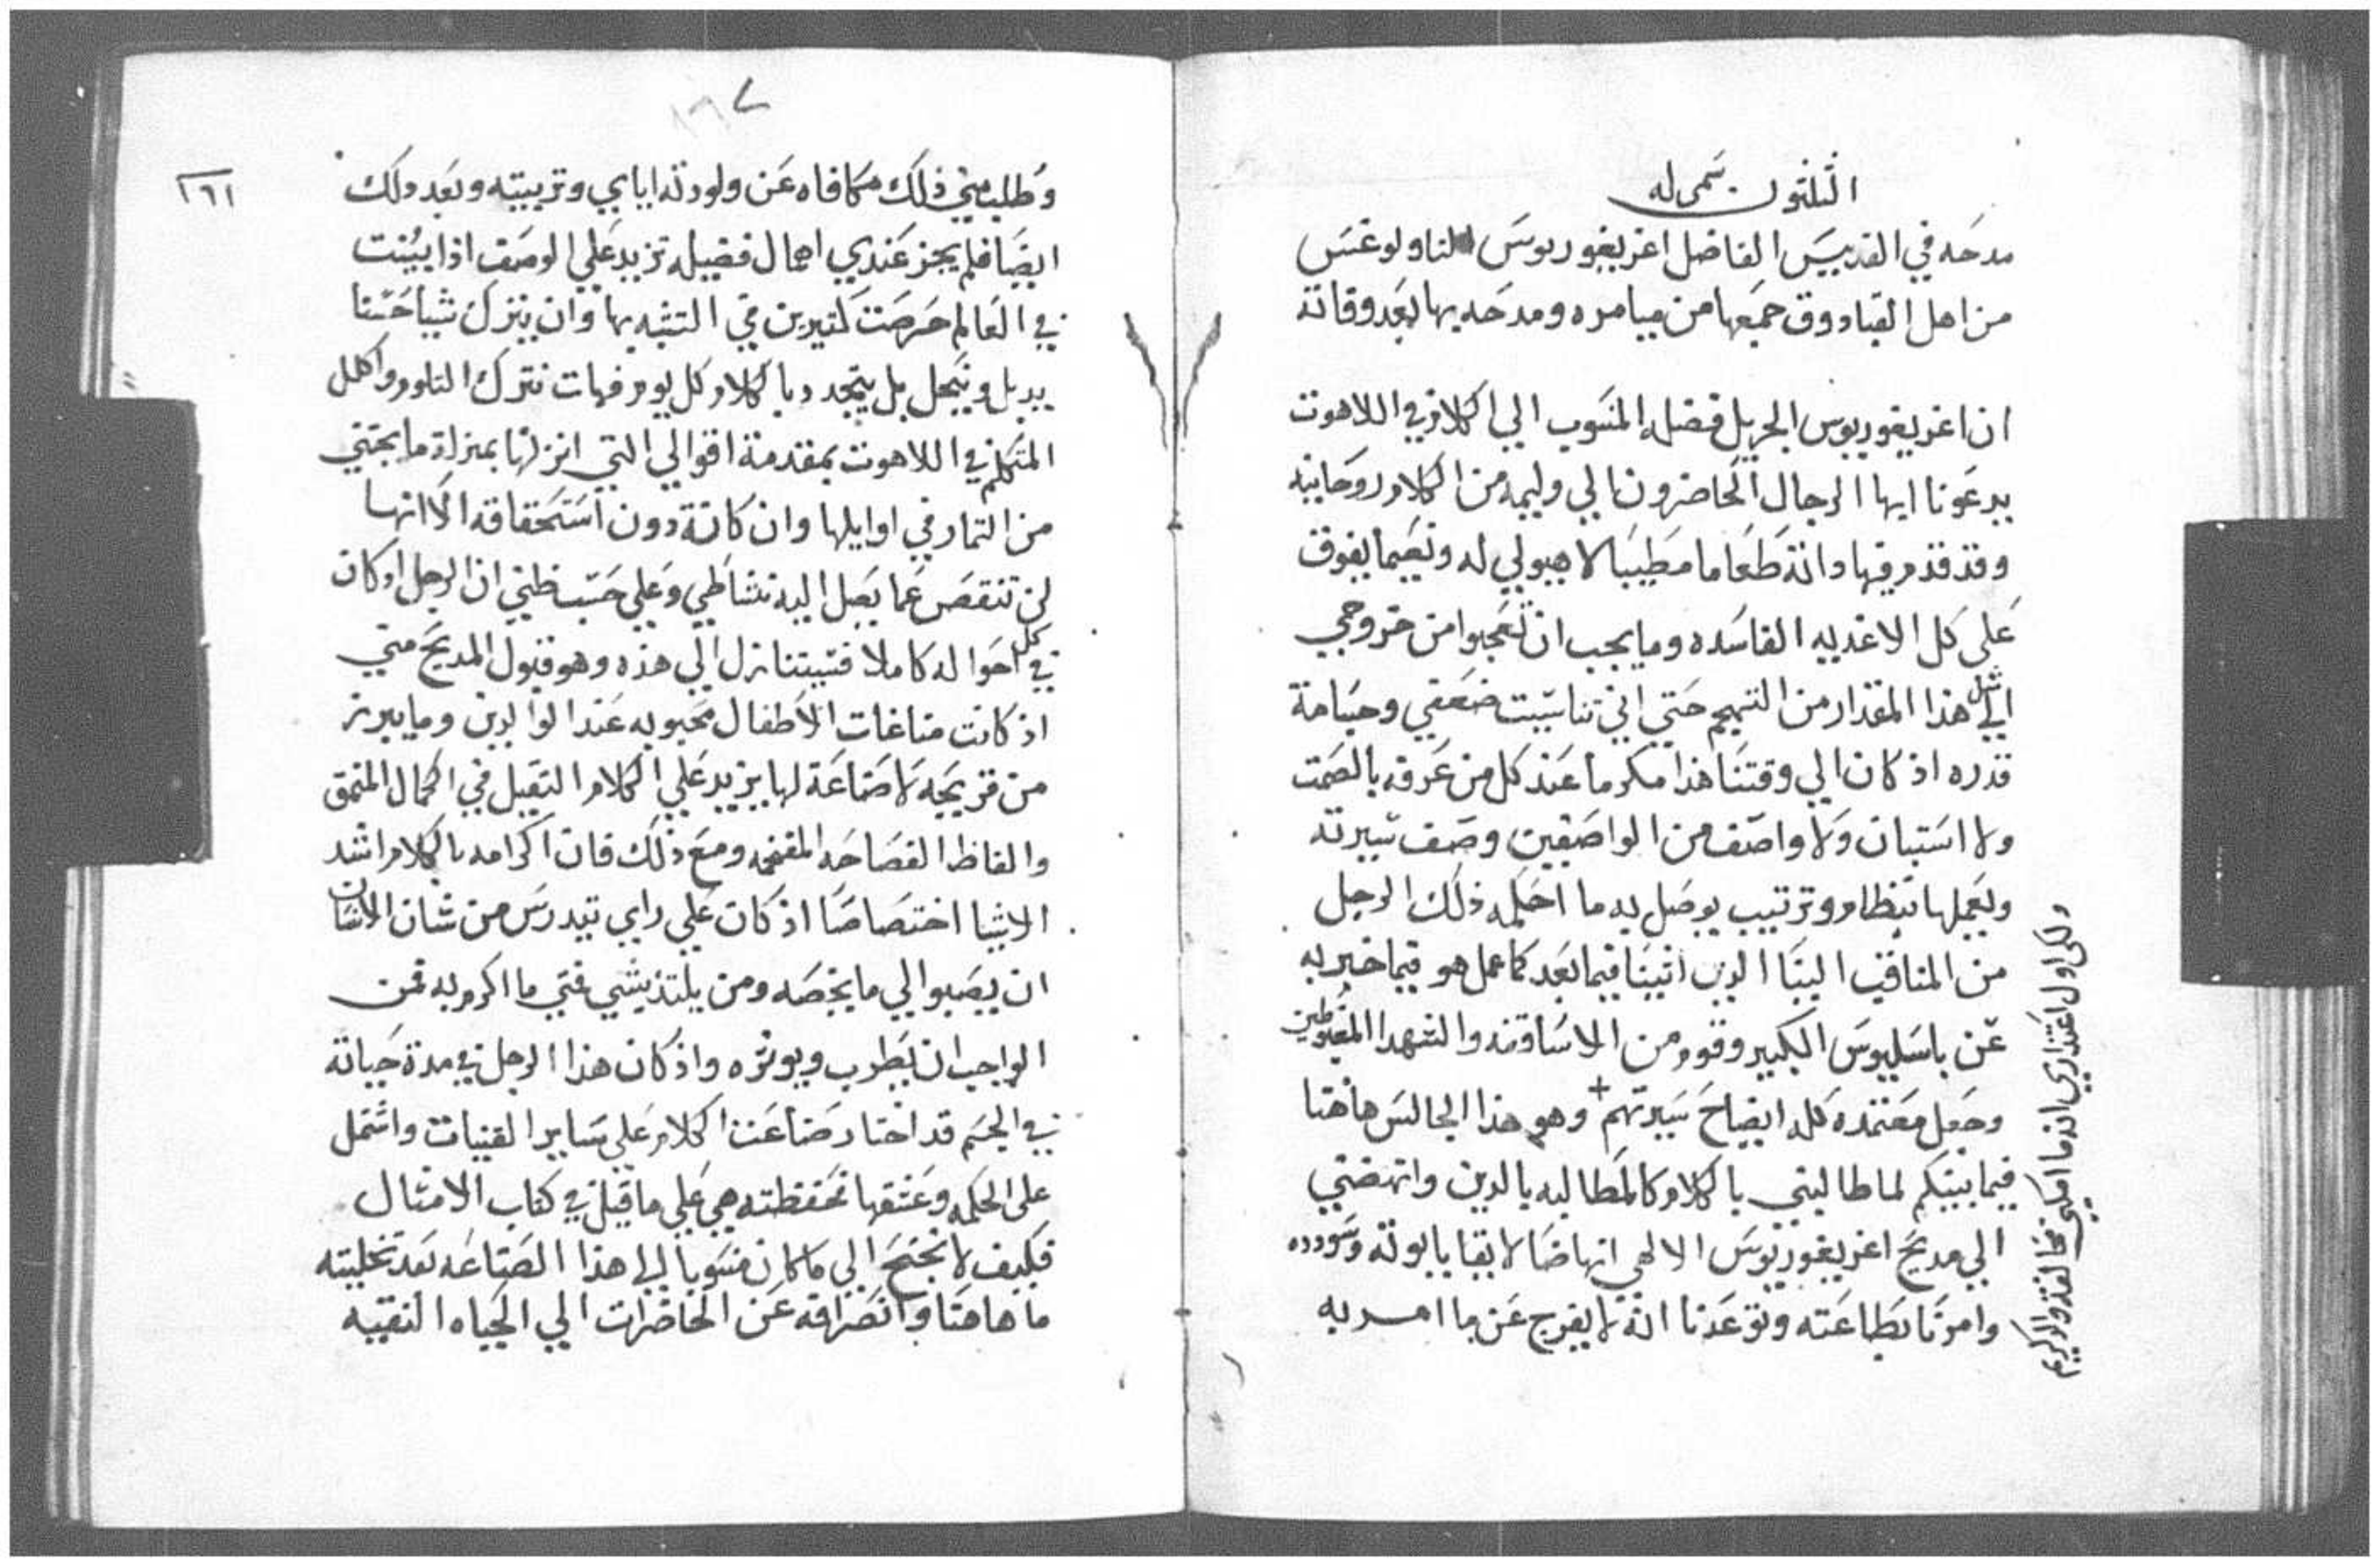 الثلثون سمى له
مدحه في القديس الفاضل اغريغوريوس الثاولوغس
من اهل القبادوق جمعها من ميامره ومدحه بها بعد وفاته
ان اغريغوريوس الجزيل فضله المنسوب الي الكلام في اللاهوت
يدعونا ايها الرجال الحاضرون الي وليمه من الكلام روحانيه
وقد قدم فيها ذاته طعاما مطيبا لا هيولي له ونعيما يفوق
على كل الاغديه الفاسده وما يجب ان تعجبوا من خروجي
الي مثل هذا المقدار من التهجم حتي اني تناسيت ضعفي وجسامة
قدره اذ كان الي وقتنا هذا مكرما عند كل من عرفه بالصمت
ولا استبان ولا واصف من الواصفين وصف سيرته
ويعملها بنظام وترتيب يوصل به ما احكمه ذلك الرجل
من المناقب الينا الدين اتينا فيما بعد كما عمل هو فيما خبر به
عن باسليوس الكبير وقوم من الاساقفه والشهدا المغبوطين
وجعل معتمده كله ايضاح سيرتهم + وهو هذا الجالس هاهنا
فيما بينكم لما طالبني بالكلام كالمطالبه بالدين وانهضني
الي مديح اغريغوريوس الالهي انهاضا لايقا بابوته وسودده
وامرنا بطاعته وتوعدنا انه لا يفرج عن ما امر به
ولكن اول اعتذاري انه ما امكني مخالفة والد كريم
١٦٧
١٦١
وطلب مني ذلك مكافاه عن ولودته اياي وتربيته وبعد دلك
ايضا فلم يجز عندي اهمال فضيله تزيد علي الوصف اذا بينت
في العالم حرصت كثيرين في التشبه بها وان يترك شيا حسنا
يدبل وينحل بل يتجدد بالكلام كل يوم فهات نترك التلوم واكلل
المتكلم في اللاهوت بمقدمة اقوالي التي انزلها بمنزلة ما يجتني
من الثمار في اوايلها وان كانة دون استحقاقه الا انها
لن تنقص عما يصل اليه نشاطي وعلي حسب ظني ان الرجل اذ كان
في كل احواله كاملا فسيتنازل الي هذه وهو قبول المديح مني
اذ كانت مناغات الاطفال محبوبه عند الوالدين وما يبرز
من قريحه لا صناعة لها يزيد علي الكلام الثقيل في الكمال المنمق
والفاظ الفصاحه المفخمه ومع ذلك فان اكرامه بالكلام اشد
الاشيا اختصاصا اذ كان علي راي تيدرس من شان الانسان
ان يصبوا الي ما يخصه ومن يلتذ بشي فمتي ما اكرم به فمن
الواجب ان يطرب ويوثره واذ كان هذا الرجل في مدة حياته
في الجسم قد اختار صناعة الكلام علي ساير القنيات واشتمل
على الحكمه وعشقها فحفظته هي علي ما قيل في كتاب الامثال
فكيف لا نجنح الي ما كان منسوبا الي هذا الصناعه بعد تخليته
ما هاهنا وانصرافه عن الحاضرات الي الحياه النقيه